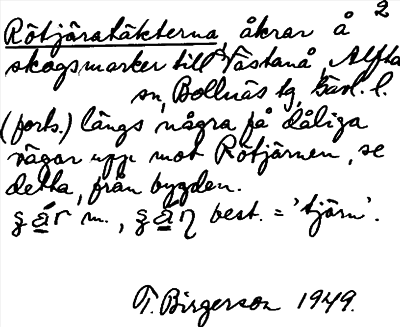 2
Rötjäratäkterna, åkrar å
skogsmarker till Västanå, Alfta
sn, Bollnäs tg, Gävl. l.
(forts.) längs några få dåliga
vägar upp mot Rötjärnen, se
detta, från bygden.
m., best. = 'tjärn'.
T. Birgerson 1949.